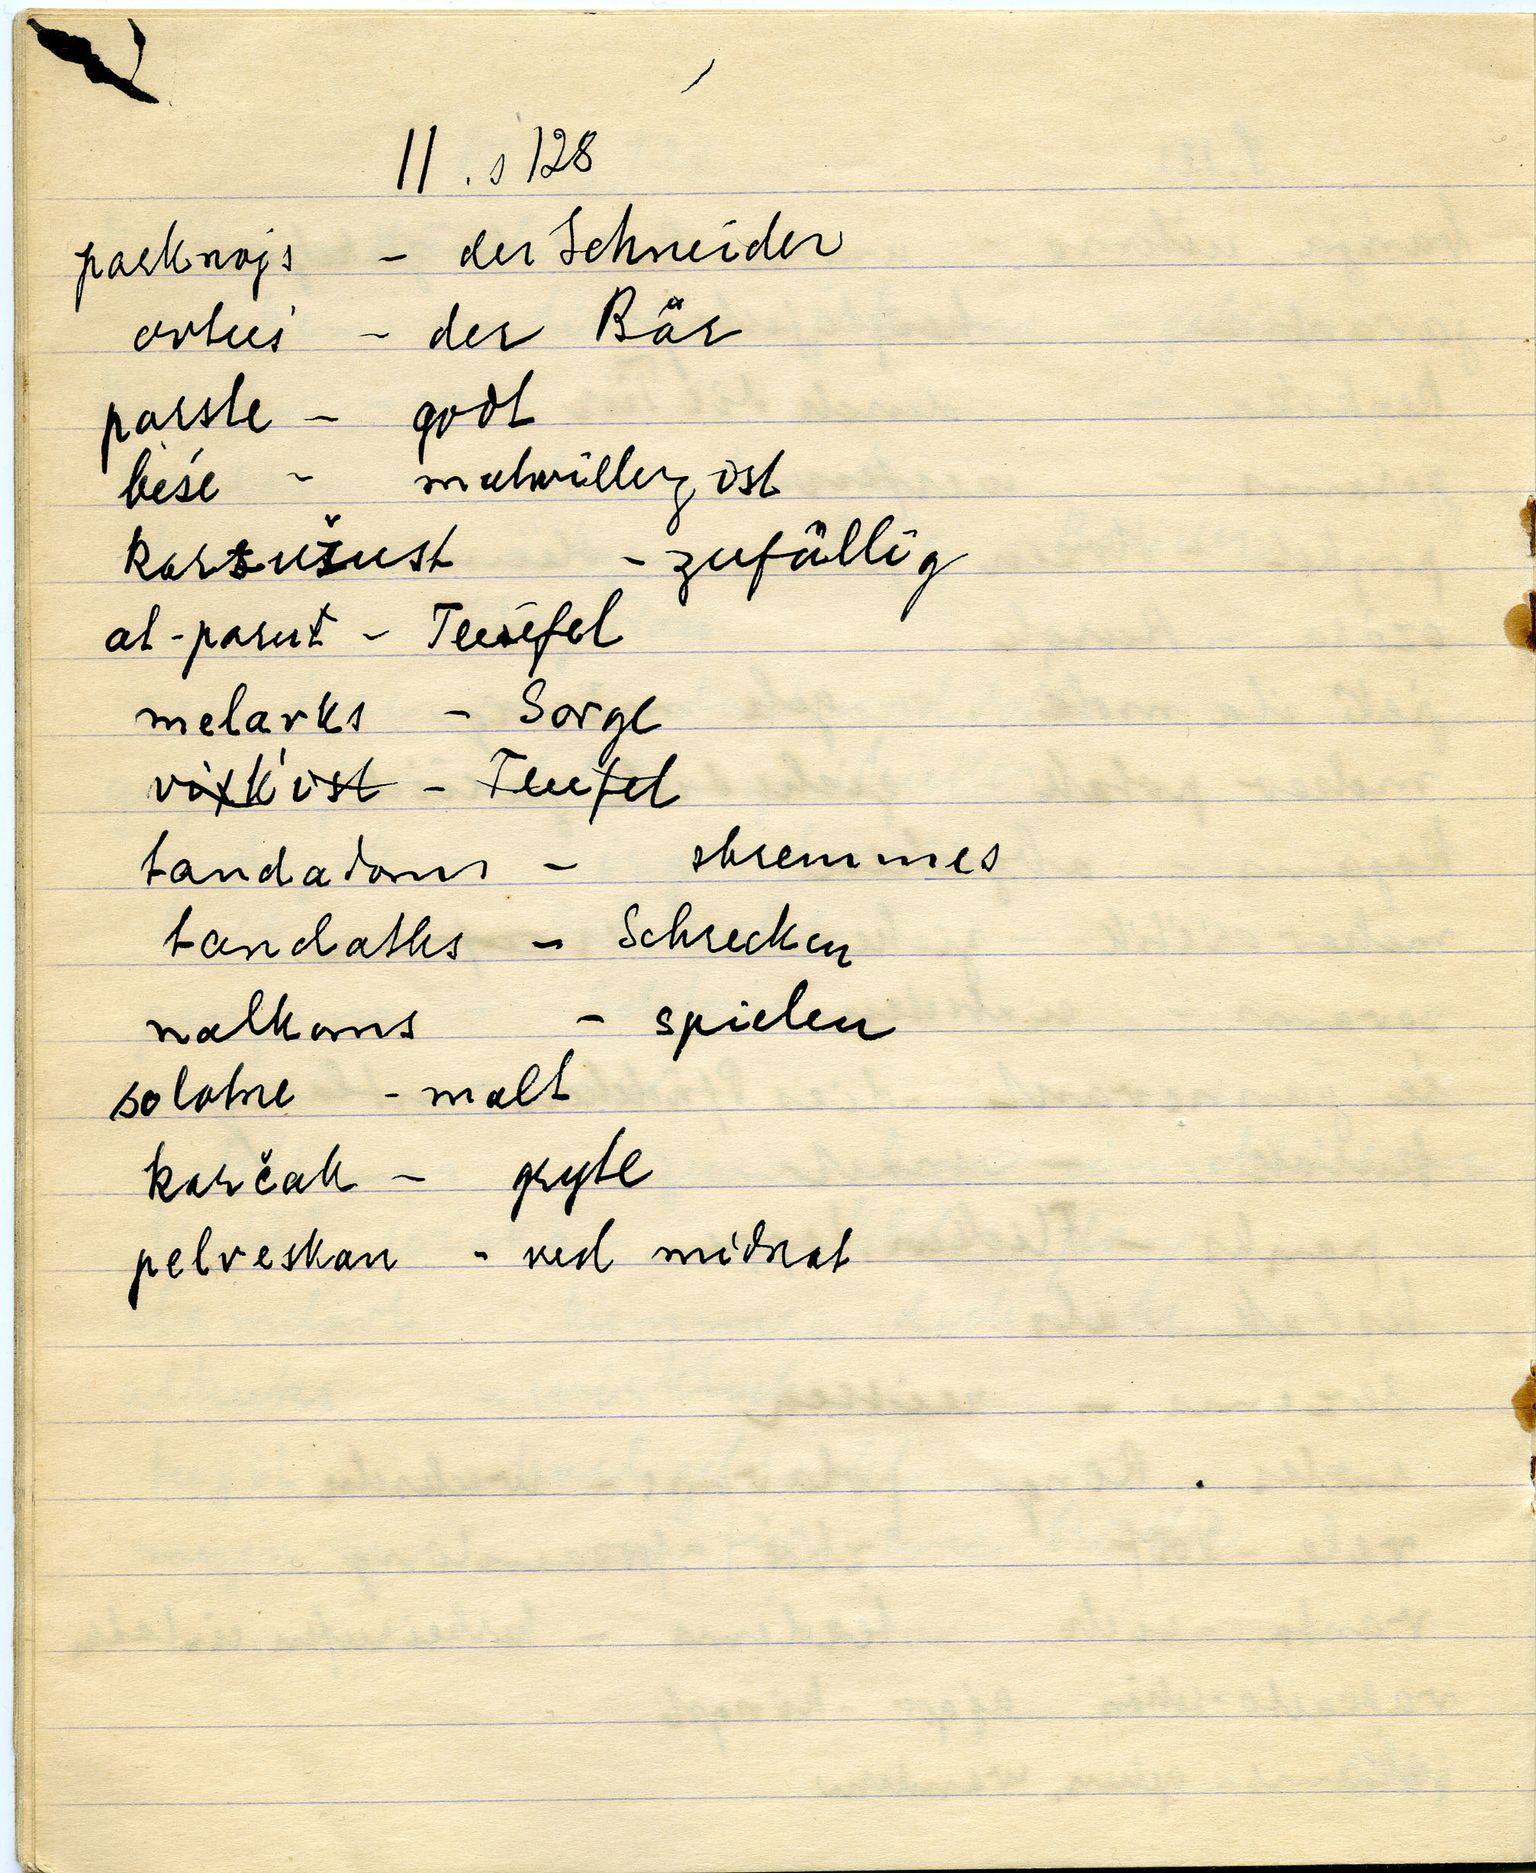 11 . s 128
parknojs - der Schneider
ovtus - der Bär
parste - godt
beśe - mutwillig ist
karšužust - zufällig
at-parut - Teufel
melavks - Sorge
vixk'ist - Teufel
tandadoms - skremmes
tandatks - Schrecken
nalkoms - spielen
solatne - malt
karčak - gryte
pelveskan - ved midnat